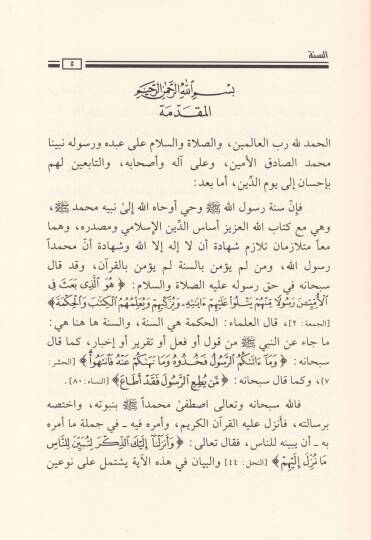 السنة
٥
بسم الله الرحمن الرحيم
المقدمة
الحمد لله رب العالمين، والصلاة والسلام على عبده ورسوله نبينا
محمد الصادق الأمين، وعلى آله وأصحابه، والتابعين لهم
بإحسان إلى يوم الدِّين، أما بعد:
فإنَّ سنة رسول الله ﷺ وحي أوحاه الله إلىٰ نبيه محمد ﷺ،
وهي مع كتاب الله العزيز أساس الدِّين الإسلامي ومصدره، وهما
معاً متلازمان تلازم شهادة أن لا إله إلا الله وشهادة أنَّ محمداً
رسول الله، ومن لم يؤمن بالسنة لم يؤمن بالقرآن، وقد قال
سبحانه في حق رسوله عليه الصلاة والسلام: ﴿ هُوَ الَّذِى بَعَثَ فِى
ٱلْأُمِّيِّـۧنَ رَسُولًا مِّنْهُمْ يَتْلُوا۟ عَلَيْهِمْ ءَايَـٰتِهِۦ وَيُزَكِّيهِمْ وَيُعَلِّمُهُمُ ٱلْكِتَـٰبَ وَٱلْحِكْمَةَ ﴾
[الجمعة: ٢]، قال العلماء: الحكمة هي السنة، والسنة ها هنا هي:
ما جاء عن النبي ﷺ من قول أو فعل أو تقرير أو إخبار، كما قال
سبحانه: ﴿ وَمَآ ءَاتَىٰكُمُ ٱلرَّسُولُ فَخُذُوهُ وَمَا نَهَىٰكُمْ عَنْهُ فَٱنتَهُوا۟ ﴾ [الحشر:
٧]، وكما قال سبحانه: ﴿ مَّن يُطِعِ ٱلرَّسُولَ فَقَدْ أَطَاعَ ﴾ [النساء: ٨٠].
فالله سبحانه وتعالى اصطفىٰ محمداً ﷺ بنبوته، واختصه
برسالته، فأنزل عليه القرآن الكريم، وأمره فيه ـ في جملة ما أمره
به ـ أن يبينه للناس، فقال تعالى: ﴿ وَأَنزَلْنَآ إِلَيْكَ ٱلذِّكْرَ لِتُبَيِّنَ لِلنَّاسِ
مَا نُزِّلَ إِلَيْهِمْ ﴾ [النحل: ٤٤] والبيان في هذه الآية يشتمل على نوعين